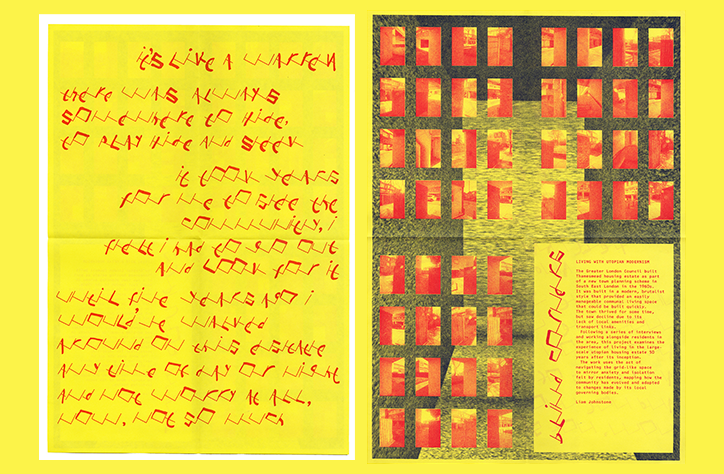 it's like a warren
there was always
somewhere to hide,
to play hide and seek
it took years
for me to the
community, i
feel i had to go out
and look for it
until five years ago i
would've walked
around on this
any time of day or night
and not worry at all,
now, not so much
blind corners
LIVING WITH UTOPIAN MODERNISM
The Greater London Council built
Thamesmead housing estate as part
of a new town planning scheme in
South East London in the 1960s.
It was built in a modern, brutalist
style that provided an easily
manageable communal living space
that could be built quickly.
The town thrived for some time,
but saw decline due to its
lack of local amenities and
transport links.
Following a series of interviews
and working alongside residents in
the area, this project examines the
experience of living in the large-
scale utopian housing estate 50
years after its inception.
The work uses the act of
navigating the grid-like space
to mirror anxiety and isolation
felt by residents, mapping how the
community has evolved and adapted
to changes made by its local
governing bodies.
Liam Johnstone